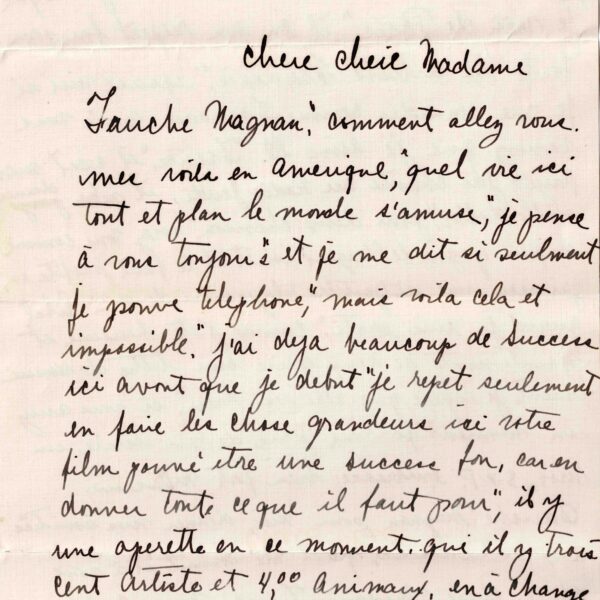 chere cherie Madame
Fauche Magnan", comment allez vous.
mes voila en Amerique," quel vie ici
tout et plan le monde s'amuse," je pense
à vous toujours" et je me dit si seulment
je pouve telephone", mais voila cela et
impossible." j'ai deja beaucoup de success
ici avant que je debut "je repet seulement
en faire les chose grandeurs ici votre
film pouvé etre une success fou, car en
donner toute ce que il faut pour", il y
une operette en ce monment. qui il y trois
cent artiste et 4,00 animaux, en à change